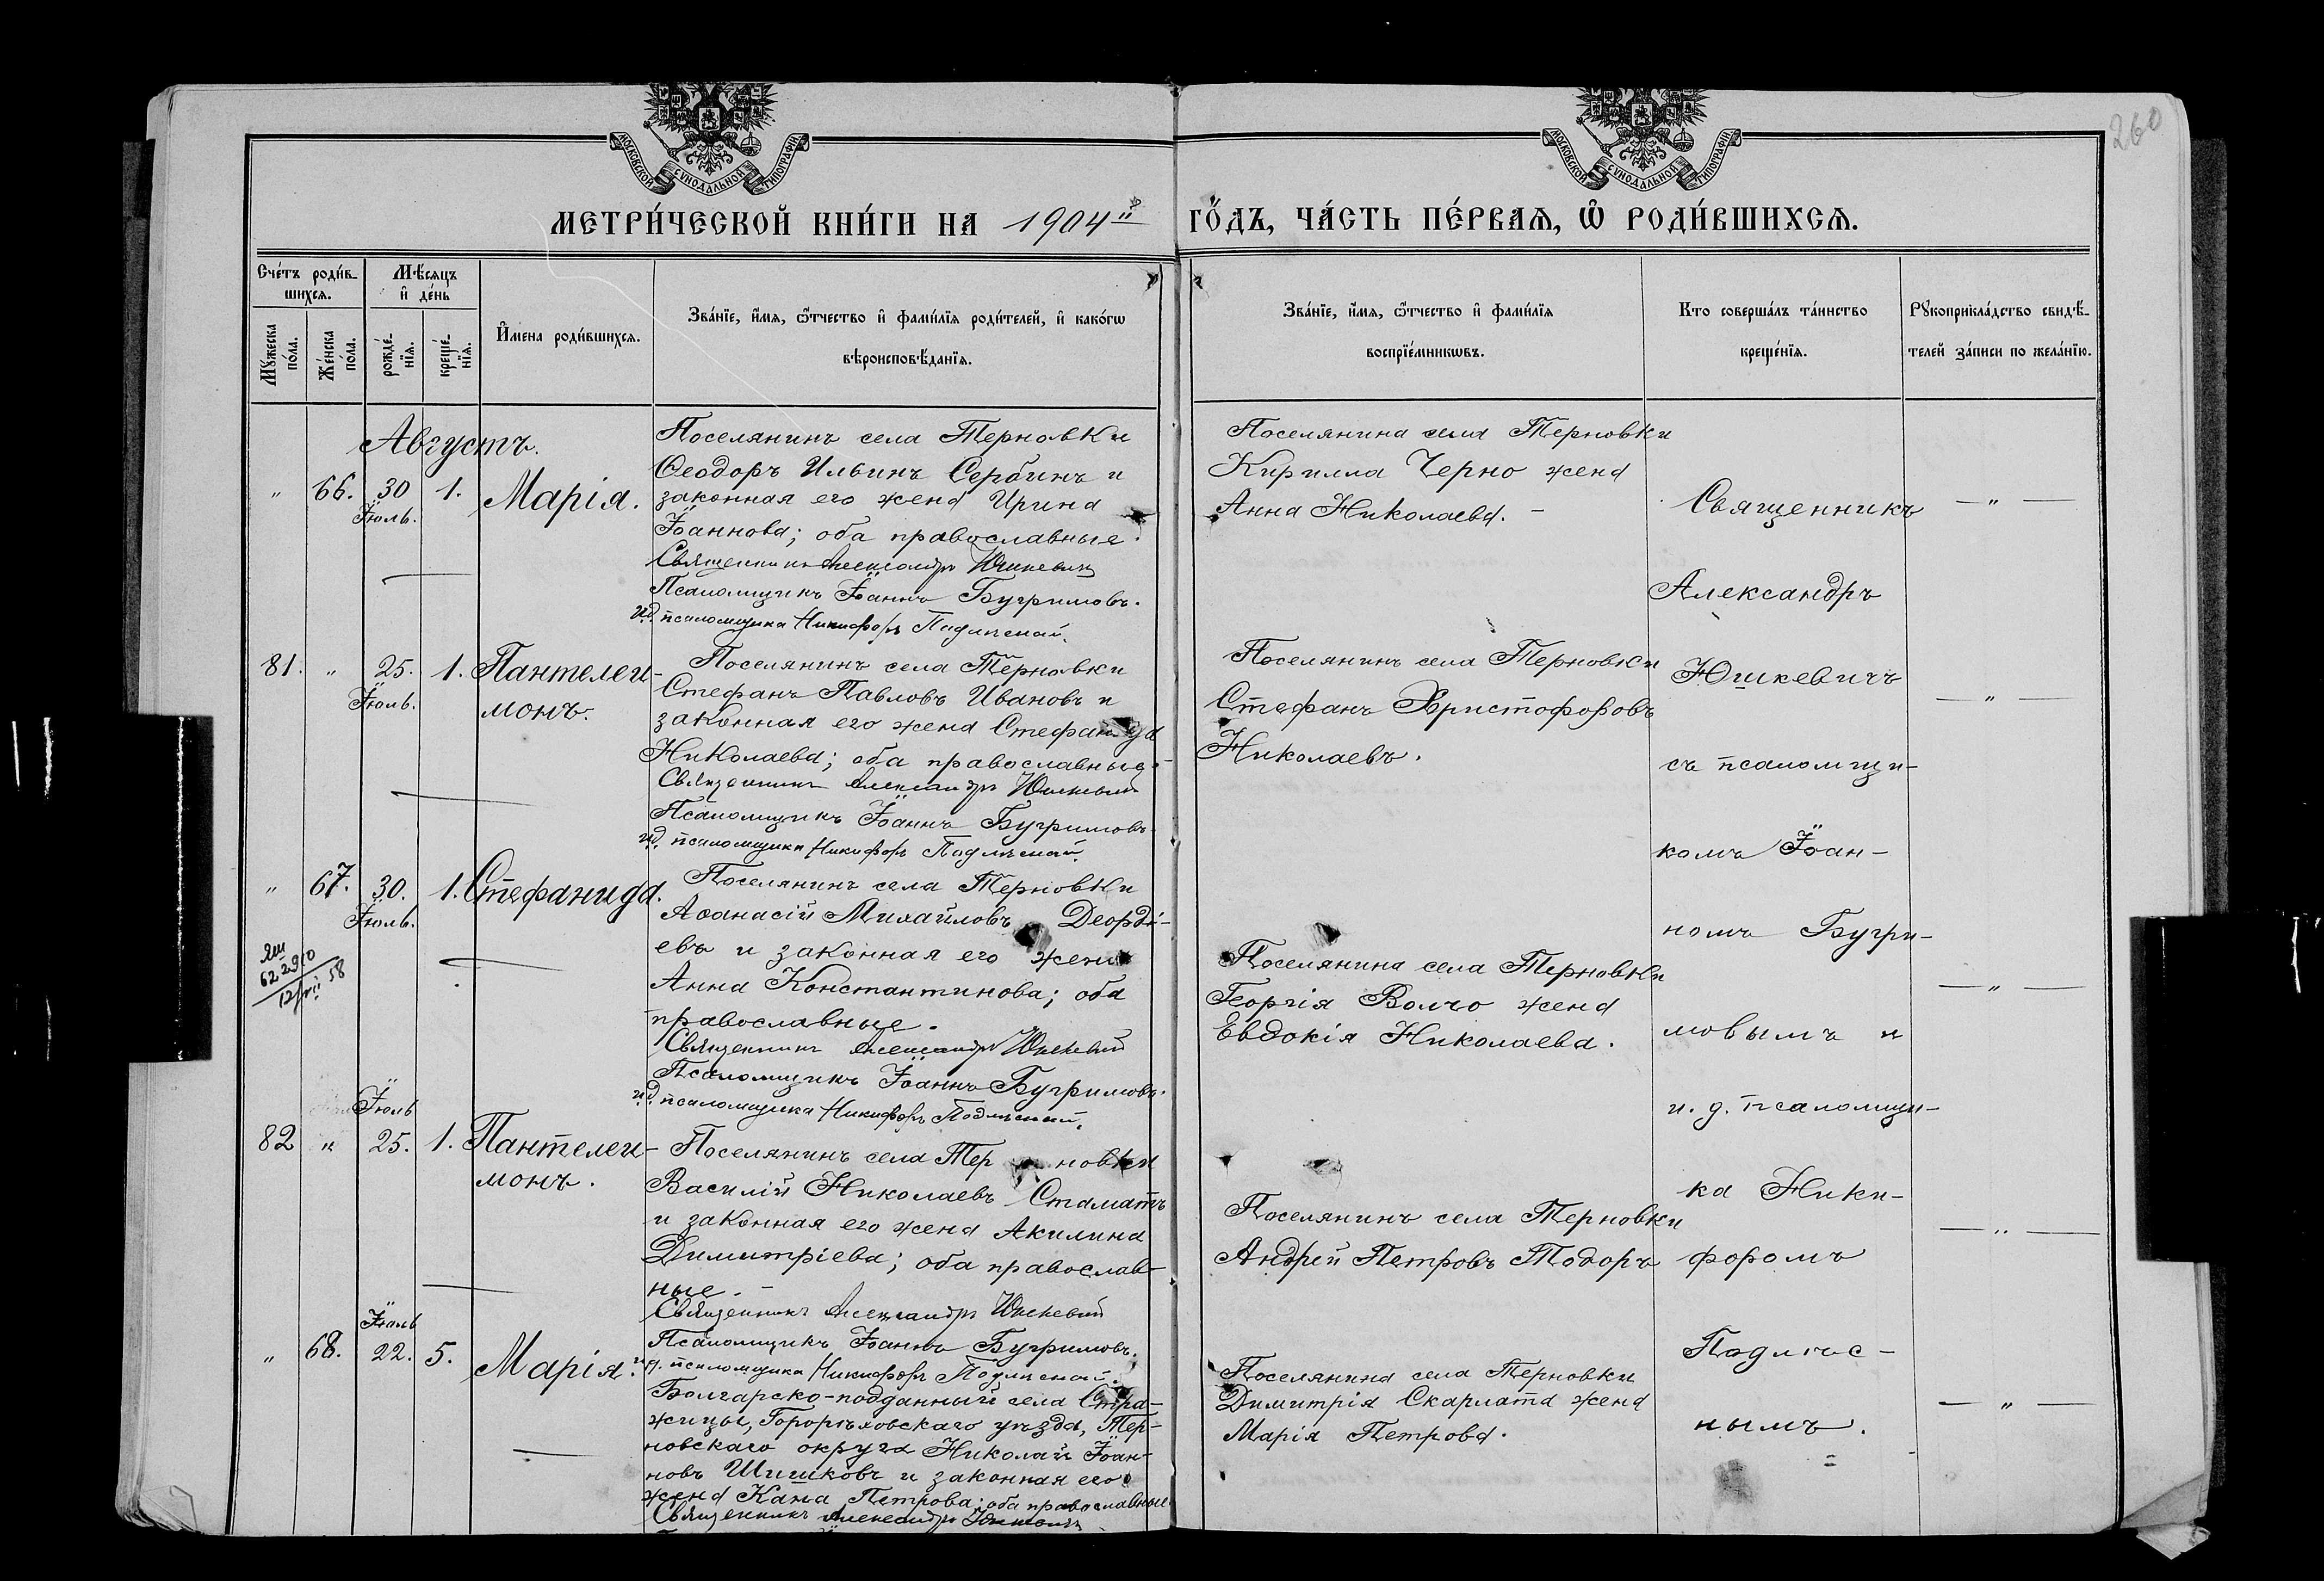 260
МОСКОВСКОЙ СѴНОДАЛЬНОЙ ТИПОГРАФІИ
МОСКОВСКОЙ СѴНОДАЛЬНОЙ ТИПОГРАФІИ
МЕТРИ́ЧЕСКОЙ КНИ́ГИ НА 1904й ГО́ДЪ, ЧА́СТЬ ПЕ́РВАѦ, Ѽ РОДИ́ВШИХСѦ.
Сче́тъ роди́в-
шихсѧ.
Мꙋжеска по́ла.
Же́нска по́ла.
Мѣ́сѧцъ
и҆ де́нь
рожде́-
нїѧ.
креще́-
нїѧ.
И҆мена роди́вшихсѧ.
Зва́нїе, и҆́мѧ, ѻ҆́тчество и҆ фами́лїѧ роди́телей, и҆ како́гѡ
вѣроисповѣ́данїѧ.
Зва́нїе, и҆́мѧ, ѻ҆́тчество и҆ фами́лїѧ
воспрїе́мникѡвъ.
Кто соверша́лъ та́инство
креще́нїѧ.
Рꙋкоприкла́дство свидѣ́-
телей за́писи по жела́нїю.
Августъ.
" 66. 30 Іюль. 1. Марія.
Поселянинъ села Терновки
Ѳеодоръ Ильинъ Сербинъ и
законная его жена Ирина
Іоаннова; оба православные.
Священникъ Александръ Юшкевичъ
Псаломщикъ Іоаннъ Бугримовъ.
и.д. псаломщика Никифоръ Подлѣсный.
Поселянина села Терновки
Кирилла Черно жена
Анна Николаева. –
— " —
81. " 25. Іюль. 1. Пантелеи-
монъ.
Поселянинъ села Терновки
Стефанъ Павловъ Ивановъ и
законная его жена Стефанида
Николаева; оба православные.
Священникъ Александръ Юшкевичъ
Псаломщикъ Іоаннъ Бугримовъ.
и.д. псаломщика Никифоръ Подлѣсный.
Поселянинъ села Терновки
Стефанъ Христофоровъ
Николаевъ.
— " —
" 67. 30. Іюль. 1. Стефанида.
622910
58
Поселянинъ села Терновки
Аѳанасій Михайловъ Деорді-
евъ и законная его жена
Анна Константинова; оба
православные.
Священникъ Александръ Юшкевичъ
Псаломщикъ Іоаннъ Бугримовъ.
и.д. псаломщика Никифоръ Подлѣсный.
Поселянина села Терновки
Георгія Волчо жена
Евдокія Николаева.
— " —
82 " Іюль 25. 1. Пантелеи-
монъ.
Поселянинъ села Тер новки
Василій Николаевъ Стаматъ
и законная его жена Акилина
Димитріева; оба православ-
ные. –
Священникъ Александръ Юшкевичъ
Псаломщикъ Іоаннъ Бугримовъ.
и.д. псаломщика Никифоръ Подлѣсный.
Поселянинъ села Терновки
Андрей Петровъ Тодоръ
— " —
" 68. Іюль 22. 5. Марія.
Болгарско-подданный села Стра-
жицы, Горорѣховскаго уѣзда, Тер-
новскаго округа Николай Іоан-
новъ Шишковъ и законная его
жена Кана Петрова; оба православные
Священникъ Александръ Юшкевичъ
Поселянина села Терновки
Димитрія Скарлата жена
Марія Петрова.
— " —
Священникъ
Александръ
Юшкевичъ
съ псаломщи-
комъ Іоан-
номъ Бугри-
мовымъ и
и. д. псаломщи-
ка Ники-
форомъ
Подлѣс-
нымъ.